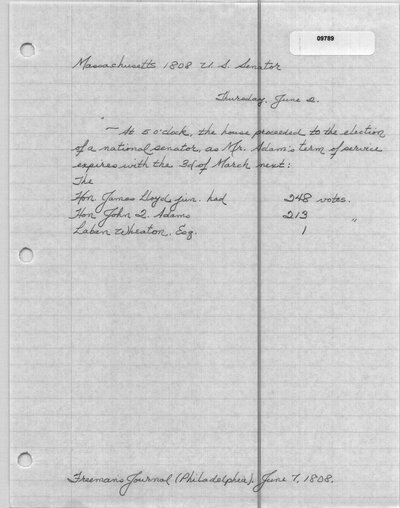 09789
Massachusetts 1808 U. S. Senator
Thursday, June 2.
"— At 5 o'clock, the house proceeded to the election
of a national senator, as Mr. Adam's term of service
expires with the 3d of March next:
The
Hon. James Lloyd, jun. had 248 votes.
Hon John Q. Adams 213 "
Laben Wheaton, Esq. 1
Freemans Journal (Philadelphia). June 7, 1808.